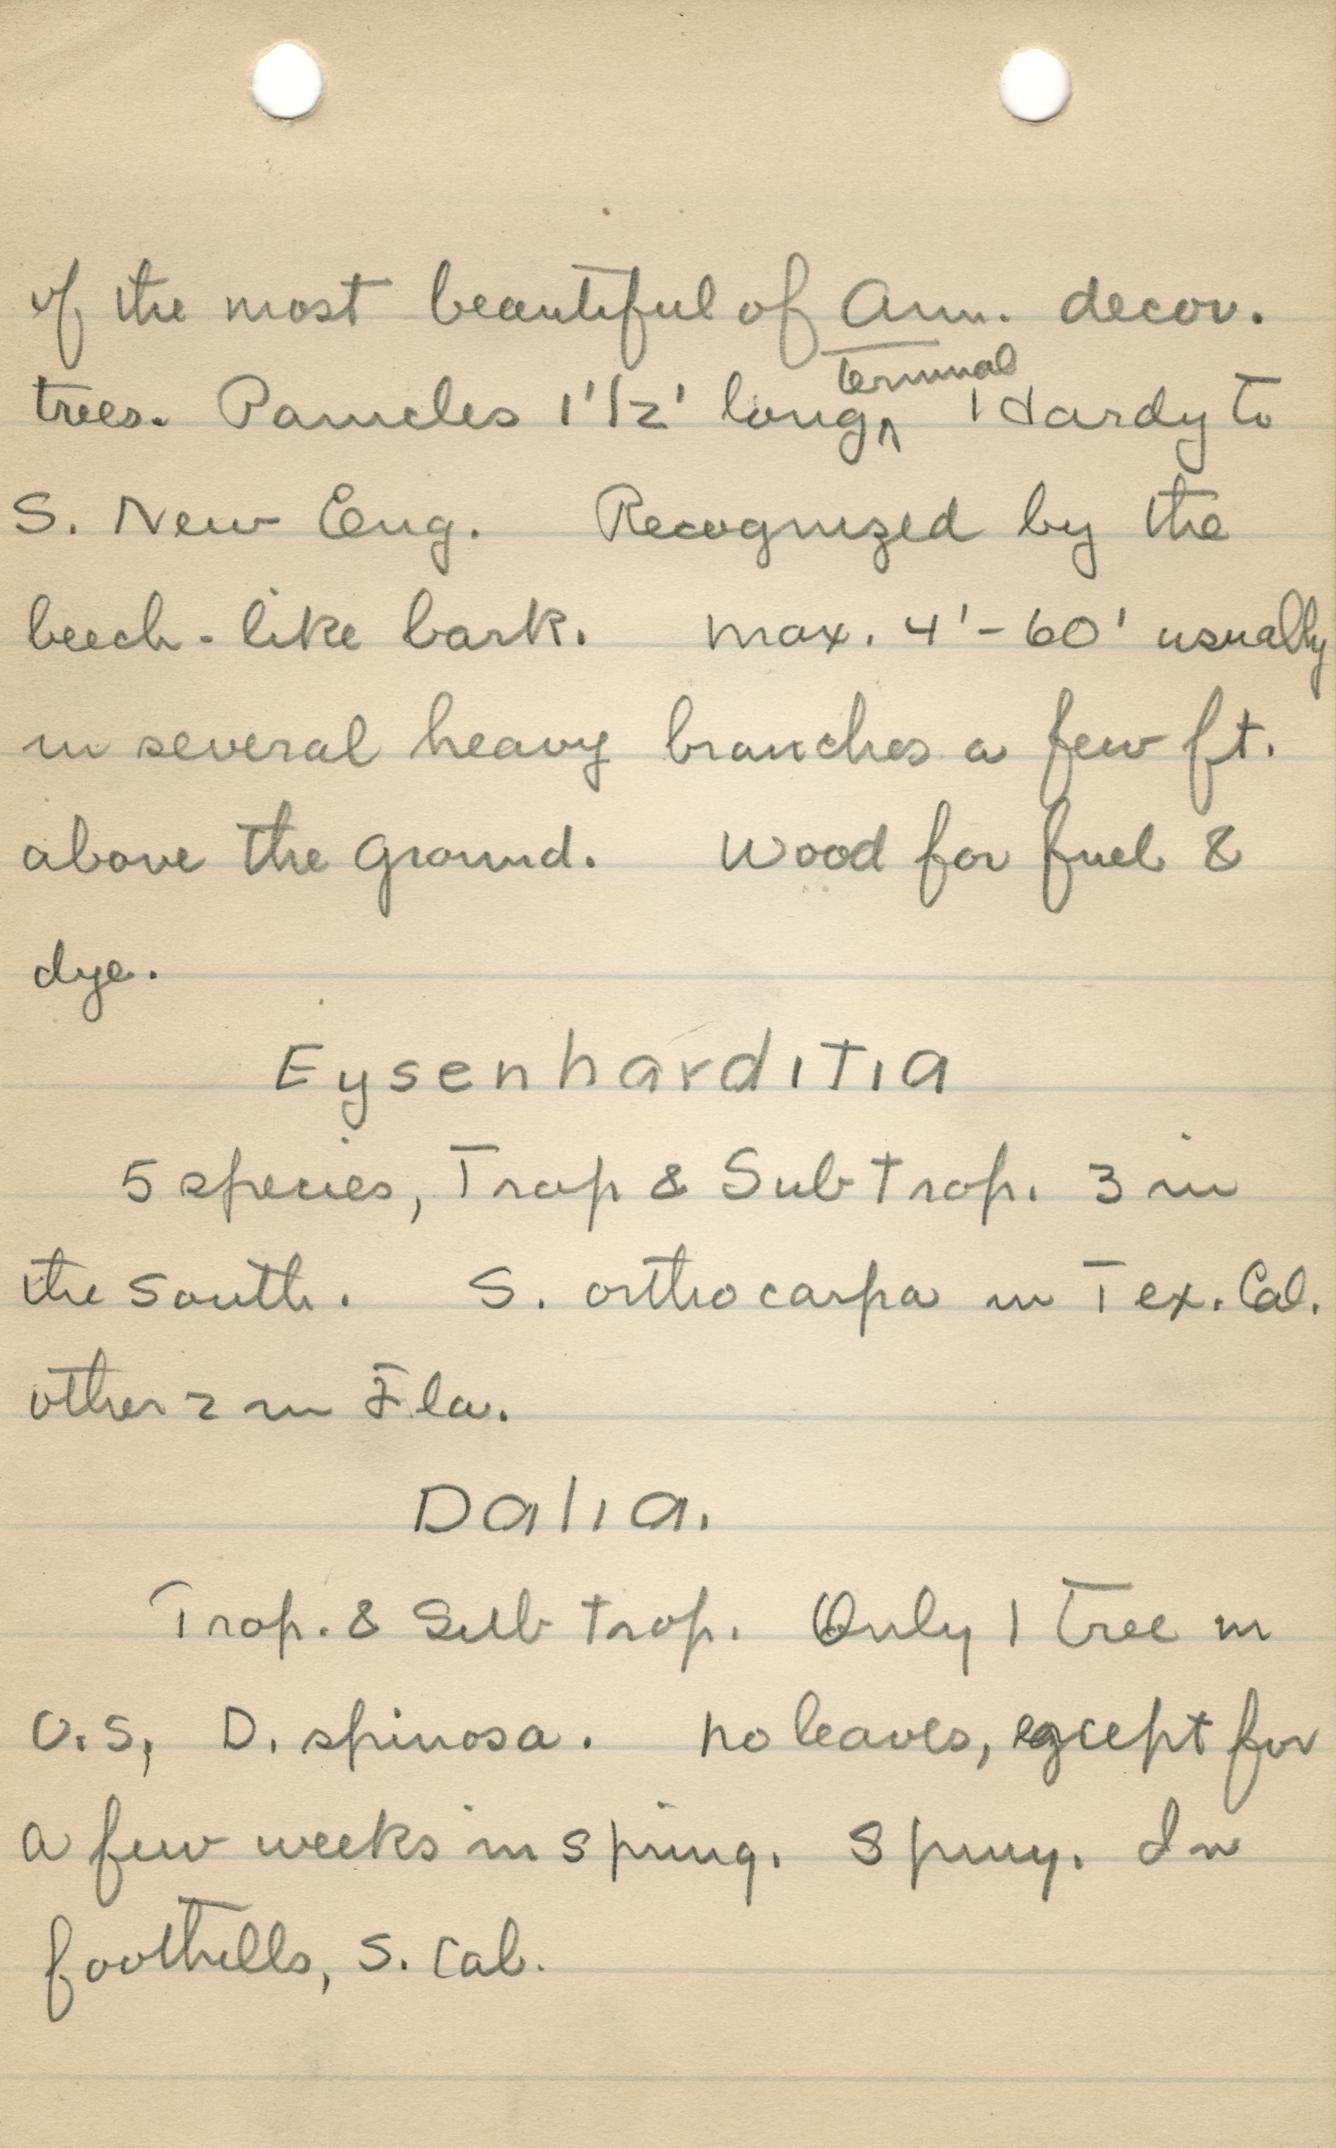 of the most beautiful of Am. decor.
terminal
trees. Panicles 1' 1/2' long, Hardy to
S. New Eng. Recognized by the
beech-like bark. Max. 4'-60' usually
in several heavy branches a few ft.
above the ground. Wood for fuel &
dye.
Eysenharditia
5 species, Trop & Sub Trop. 3 in
the South. S. orthocarpa in Tex. Cal.
other 2 in Fla.
Dalia.
Trop. & Sub trop. Only 1 tree in
U.S, D. spinosa. No leaves, except for
a few weeks in spring. Spiny. In
foothills, S. Cal.